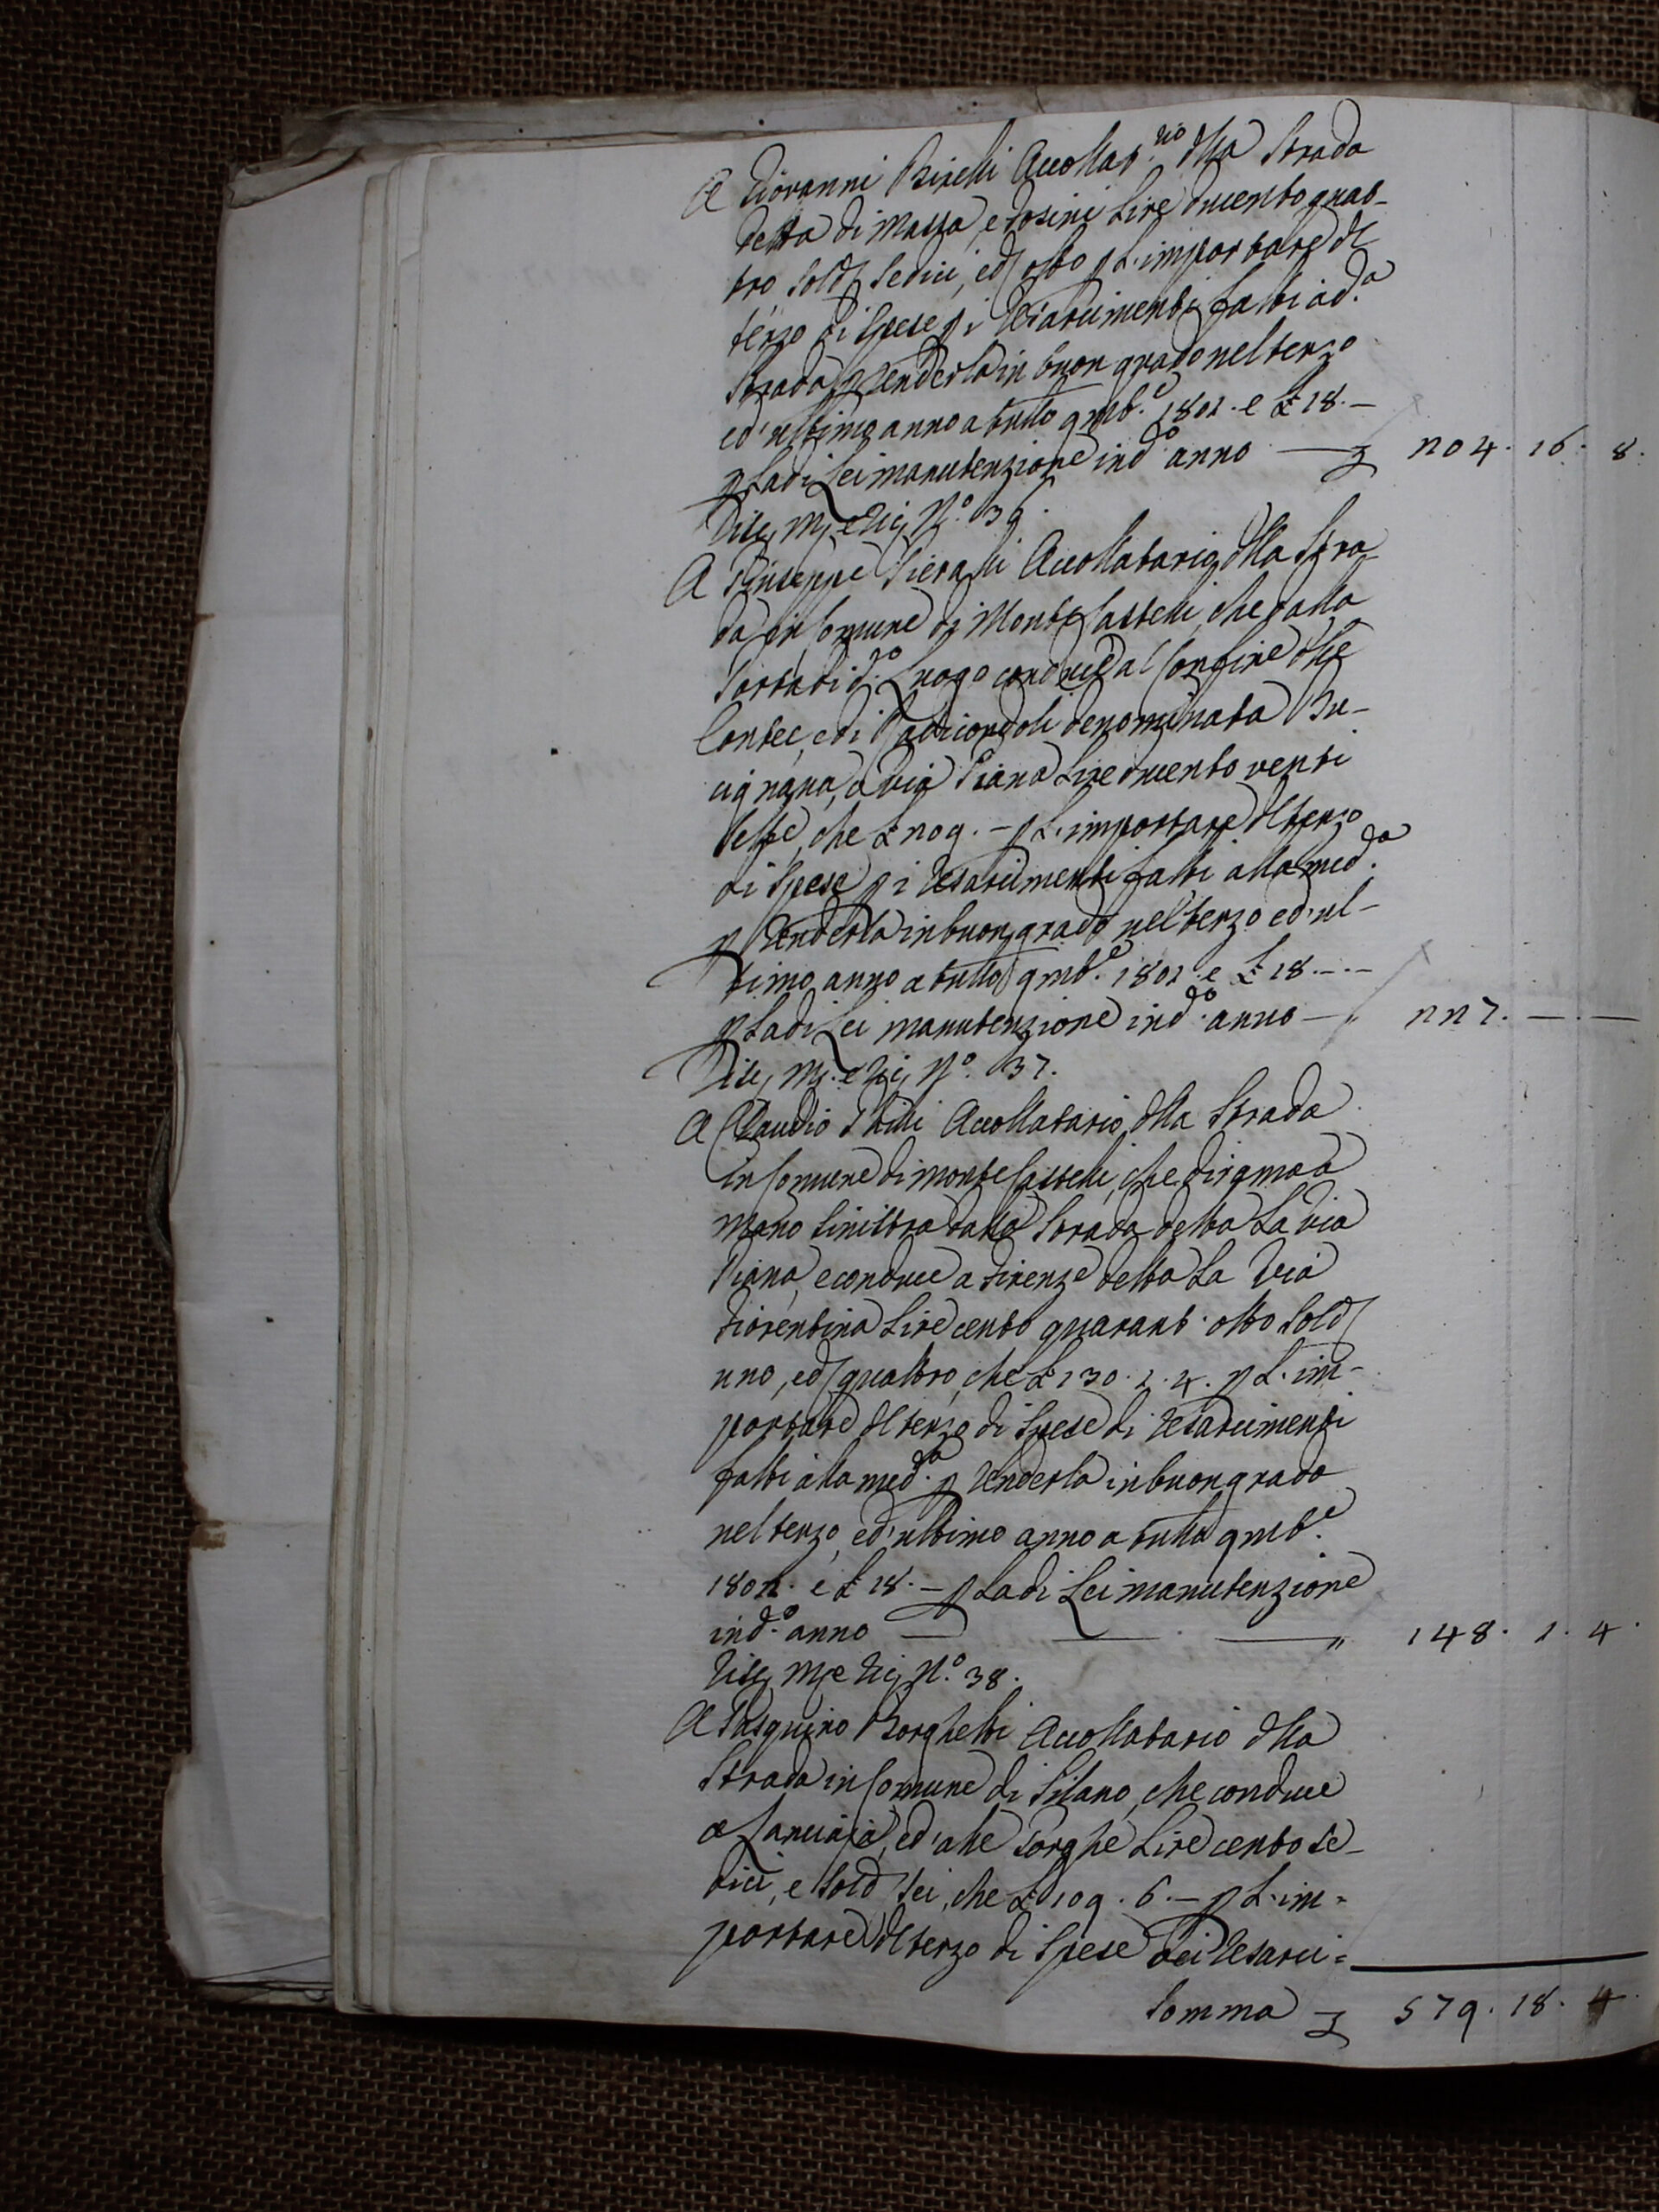 A Giovanni Birelli Accollat.rio dlla Strada
detta di Massa, e Cosini Lire ducento quat-
tro, Sold Sedici, ed otto p L'importare dl
terzo di Spese p i Resarcimenti fatti a d.a
Strada p renderla in buon grado nel terzo
ed ultimo anno a tutto 9mb.e 1802. e £ 18. —
p La di Lei manutenzione in d.o anno — £ 204. 16. 8.
N.o 36.
A Giuseppe Pieralli Accollatario dlla Stra-
da in Comune di Monte Castelli, che dalla
Porta di d.o Luogo conduce al Confine dlle
Contee, e di Radicondoli denominata Bu-
cignana, o via Piana Lire ducento venti
sette, che £ 209. — p L'importare dl terzo
di Spese p i resarcimenti fatti alla med.da
p renderla in buon grado nel terzo ed ul-
timo anno a tutto 9mb.e 1802. e £ 18. —. —
p La di Lei manutenzione in d.o anno — " 227. —. —
N.o 37.
A Claudio Ghilli Accollatario dlla Strada
in Comune di Monte Castelli, che dirama a
mano Sinistra dalla Strada detta La via
Piana, e conduce a Firenze detta La Via
Fiorentina Lire cento quarant'otto Sold
uno, ed quattro, che £ 130. 1. 4. p L'im-
portare dl terzo di Spese di resarcimenti
fatti alla med.da p renderla in buon grado
nel terzo, ed ultimo anno a tutto 9mb.e
1802. e £ 18. — p La di Lei manutenzione
in d.o anno — — — " 148. 1. 4.
N.o 38.
A Pasquino Borghetti Accollatario dlla
Strada in Comune di Silano, che conduce
a Lanciaja, ed alle Gorghe Lire cento se-
dici, e Sold Sei, che £ 109. 6. — p L'im=
portare dl terzo di Spese dei resarci=
Somma £ 579. 18. 4